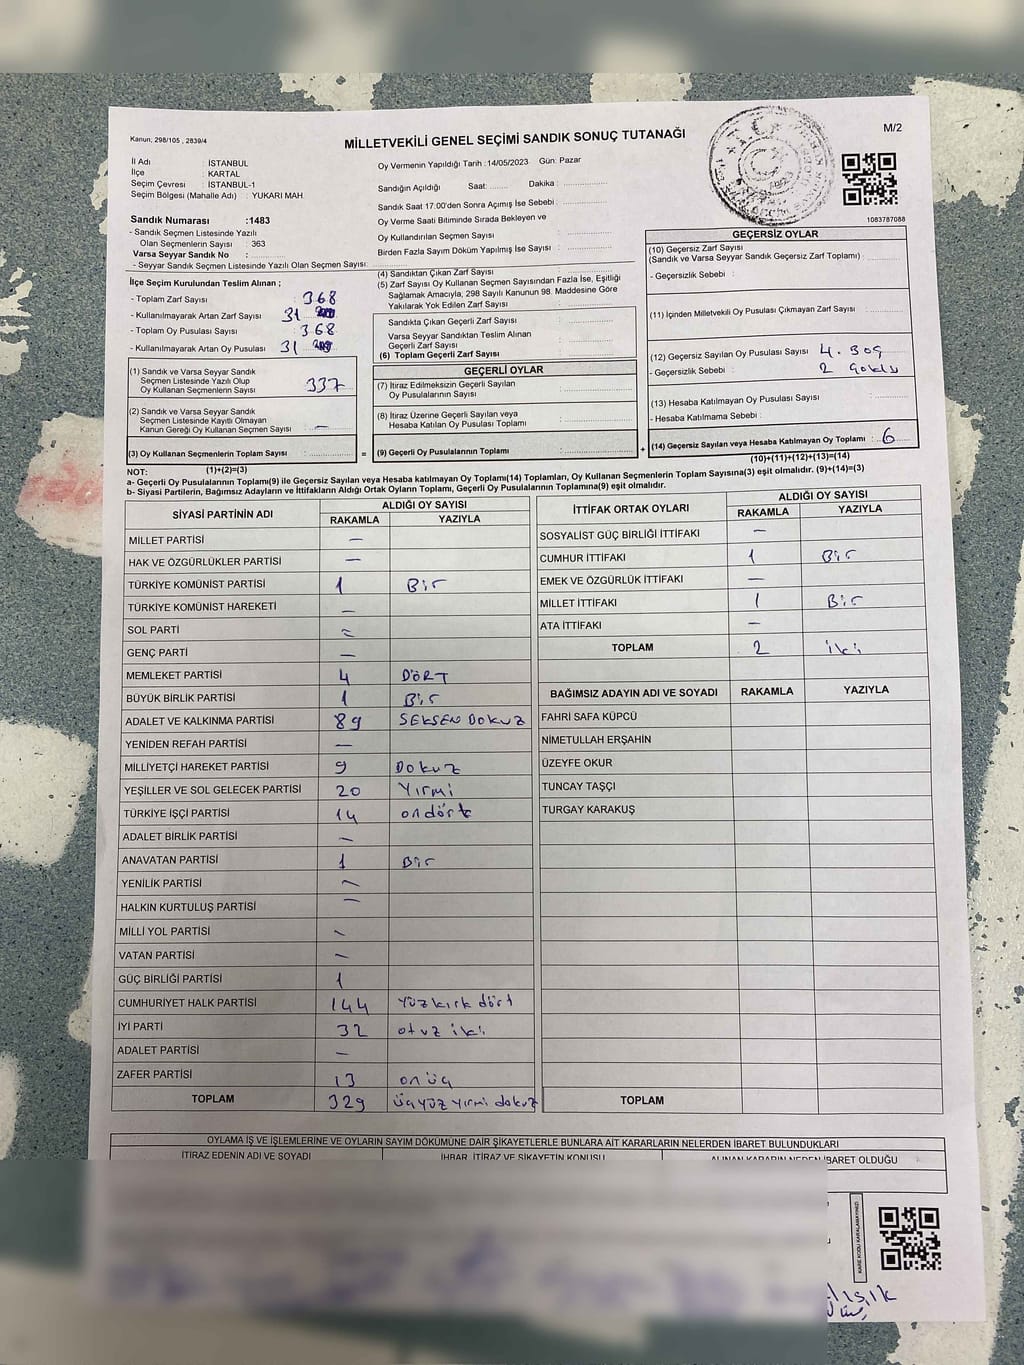 Kanun; 298/105 , 2839/4
MİLLETVEKİLİ GENEL SEÇİMİ SANDIK SONUÇ TUTANAĞI
M/2
İl Adı : İSTANBUL
İlçe : KARTAL
Seçim Çevresi : İSTANBUL-1
Seçim Bölgesi (Mahalle Adı) : YUKARI MAH.
Sandık Numarası :1483
- Sandık Seçmen Listesinde Yazılı
Olan Seçmenlerin Sayısı : 363
Varsa Seyyar Sandık No :
- Seyyar Sandık Seçmen Listesinde Yazılı Olan Seçmen Sayısı:
Oy Vermenin Yapıldığı Tarih :14/05/2023 Gün: Pazar
Sandığın Açıldığı Saat: Dakika :
Sandık Saat 17:00'den Sonra Açımış İse Sebebi :
Oy Verme Saati Bitiminde Sırada Bekleyen ve
Oy Kullandırılan Seçmen Sayısı :
Birden Fazla Sayım Döküm Yapılmış İse Sayısı :
1083787088
İlçe Seçim Kurulundan Teslim Alınan ;
- Toplam Zarf Sayısı : 368
- Kullanılmayarak Artan Zarf Sayısı : 31
- Toplam Oy Pusulası Sayısı : 368
- Kullanılmayarak Artan Oy Pusulası : 31
(1) Sandık ve Varsa Seyyar Sandık
Seçmen Listesinde Yazılı Olup
Oy Kullanan Seçmenlerin Sayısı : 337
(2) Sandık ve Varsa Seyyar Sandık
Seçmen Listesinde Kayıtlı Olmayan
Kanun Gereği Oy Kullanan Seçmen Sayısı : —
(3) Oy Kullanan Seçmenlerin Toplam Sayısı :
=
(4) Sandıktan Çıkan Zarf Sayısı :
(5) Zarf Sayısı Oy Kullanan Seçmen Sayısından Fazla İse, Eşitliği
Sağlamak Amacıyla, 298 Sayılı Kanunun 98. Maddesine Göre
Yakılarak Yok Edilen Zarf Sayısı :
Sandıkta Çıkan Geçerli Zarf Sayısı :
Varsa Seyyar Sandıktan Teslim Alınan
Geçerli Zarf Sayısı :
(6) Toplam Geçerli Zarf Sayısı :
GEÇERLİ OYLAR
(7) İtiraz Edilmeksizin Geçerli Sayılan
Oy Pusulalarının Sayısı :
(8) İtiraz Üzerine Geçerli Sayılan veya
Hesaba Katılan Oy Pusulası Toplamı :
(9) Geçerli Oy Pusulalarının Toplamı :
+
GEÇERSİZ OYLAR
(10) Geçersiz Zarf Sayısı
(Sandık ve Varsa Seyyar Sandık Geçersiz Zarf Toplamı) :
- Geçersizlik Sebebi :
(11) İçinden Milletvekili Oy Pusulası Çıkmayan Zarf Sayısı :
(12) Geçersiz Sayılan Oy Pusulası Sayısı :
- Geçersizlik Sebebi : 2
(13) Hesaba Katılmayan Oy Pusulası Sayısı :
- Hesaba Katılmama Sebebi :
(14) Geçersiz Sayılan veya Hesaba Katılmayan Oy Toplamı : 6
NOT: (1)+(2)=(3) (10)+(11)+(12)+(13)=(14)
a- Geçerli Oy Pusulalarının Toplamı(9) ile Geçersiz Sayılan veya Hesaba katılmayan Oy Toplamı(14) Toplamları, Oy Kullanan Seçmenlerin Toplam Sayısına(3) eşit olmalıdır. (9)+(14)=(3)
b- Siyasi Partilerin, Bağımsız Adayların ve İttifakların Aldığı Ortak Oyların Toplamı, Geçerli Oy Pusulalarının Toplamına(9) eşit olmalıdır.
SİYASİ PARTİNİN ADI ALDIĞI OY SAYISI
RAKAMLA YAZIYLA
MİLLET PARTİSİ —
HAK VE ÖZGÜRLÜKLER PARTİSİ —
TÜRKİYE KOMÜNİST PARTİSİ 1 Bir
TÜRKİYE KOMÜNİST HAREKETİ —
SOL PARTİ —
GENÇ PARTİ —
MEMLEKET PARTİSİ 4 DÖRT
BÜYÜK BİRLİK PARTİSİ 1 Bir
ADALET VE KALKINMA PARTİSİ 89 SEKSEN DOKUZ
YENİDEN REFAH PARTİSİ —
MİLLİYETÇİ HAREKET PARTİSİ 9 Dokuz
YEŞİLLER VE SOL GELECEK PARTİSİ 20 Yırmi
TÜRKİYE İŞÇİ PARTİSİ 14 ondört
ADALET BİRLİK PARTİSİ —
ANAVATAN PARTİSİ 1 Bir
YENİLİK PARTİSİ —
HALKIN KURTULUŞ PARTİSİ —
MİLLİ YOL PARTİSİ —
VATAN PARTİSİ —
GÜÇ BİRLİĞİ PARTİSİ 1
CUMHURİYET HALK PARTİSİ 144 Yüzkırk dört
İYİ PARTİ 32 otuz iki
ADALET PARTİSİ —
ZAFER PARTİSİ 13 on üç
TOPLAM 329 üçyüz yırmi dokuz
İTTİFAK ORTAK OYLARI ALDIĞI OY SAYISI
RAKAMLA YAZIYLA
SOSYALİST GÜÇ BİRLİĞİ İTTİFAKI —
CUMHUR İTTİFAKI 1 Bir
EMEK VE ÖZGÜRLÜK İTTİFAKI —
MİLLET İTTİFAKI 1 Bir
ATA İTTİFAKI —
TOPLAM 2 iki
BAĞIMSIZ ADAYIN ADI VE SOYADI RAKAMLA YAZIYLA
FAHRİ SAFA KÜPCÜ
NİMETULLAH ERŞAHİN
ÜZEYFE OKUR
TUNCAY TAŞÇI
TURGAY KARAKUŞ
TOPLAM
OYLAMA İŞ VE İŞLEMLERİNE VE OYLARIN SAYIM DÖKÜMÜNE DAİR ŞİKAYETLERLE BUNLARA AİT KARARLARIN NELERDEN İBARET BULUNDUKLARI
İTİRAZ EDENİN ADI VE SOYADI İHBAR, İTİRAZ VE ŞİKAYETİN KONUSU ALINAN KARARIN NEDEN İBARET OLDUĞU
KARE KODU KARALAMAYINIZ!